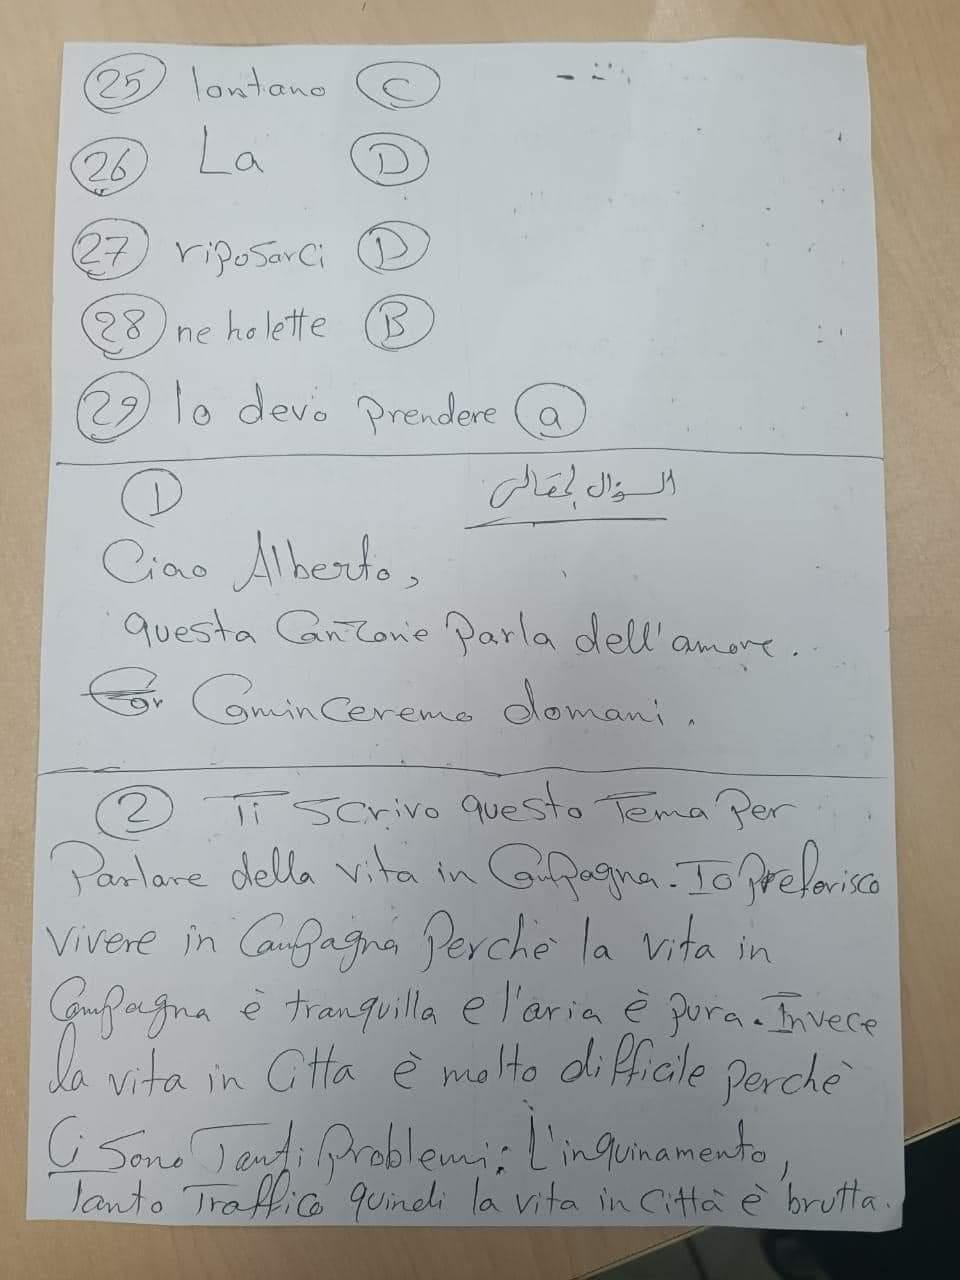 25 lontano C
26 La D
27 riposarci D
28 ne ho lette B
29 lo devo prendere a
1 السؤال المقالي
Ciao Alberto,
questa Canzone Parla dell'amore.
Cominceremo domani.
2 Ti scrivo questo Tema Per
Parlare della vita in Campagna. Io Preferisco
vivere in Campagna Perchè la vita in
Campagna è tranquilla e l'aria è pura. Invece
la vita in Citta è molto difficile perchè
Ci Sono Tanti Problemi: L'inquinamento,
Tanto Traffico quindi la vita in Città è brutta.